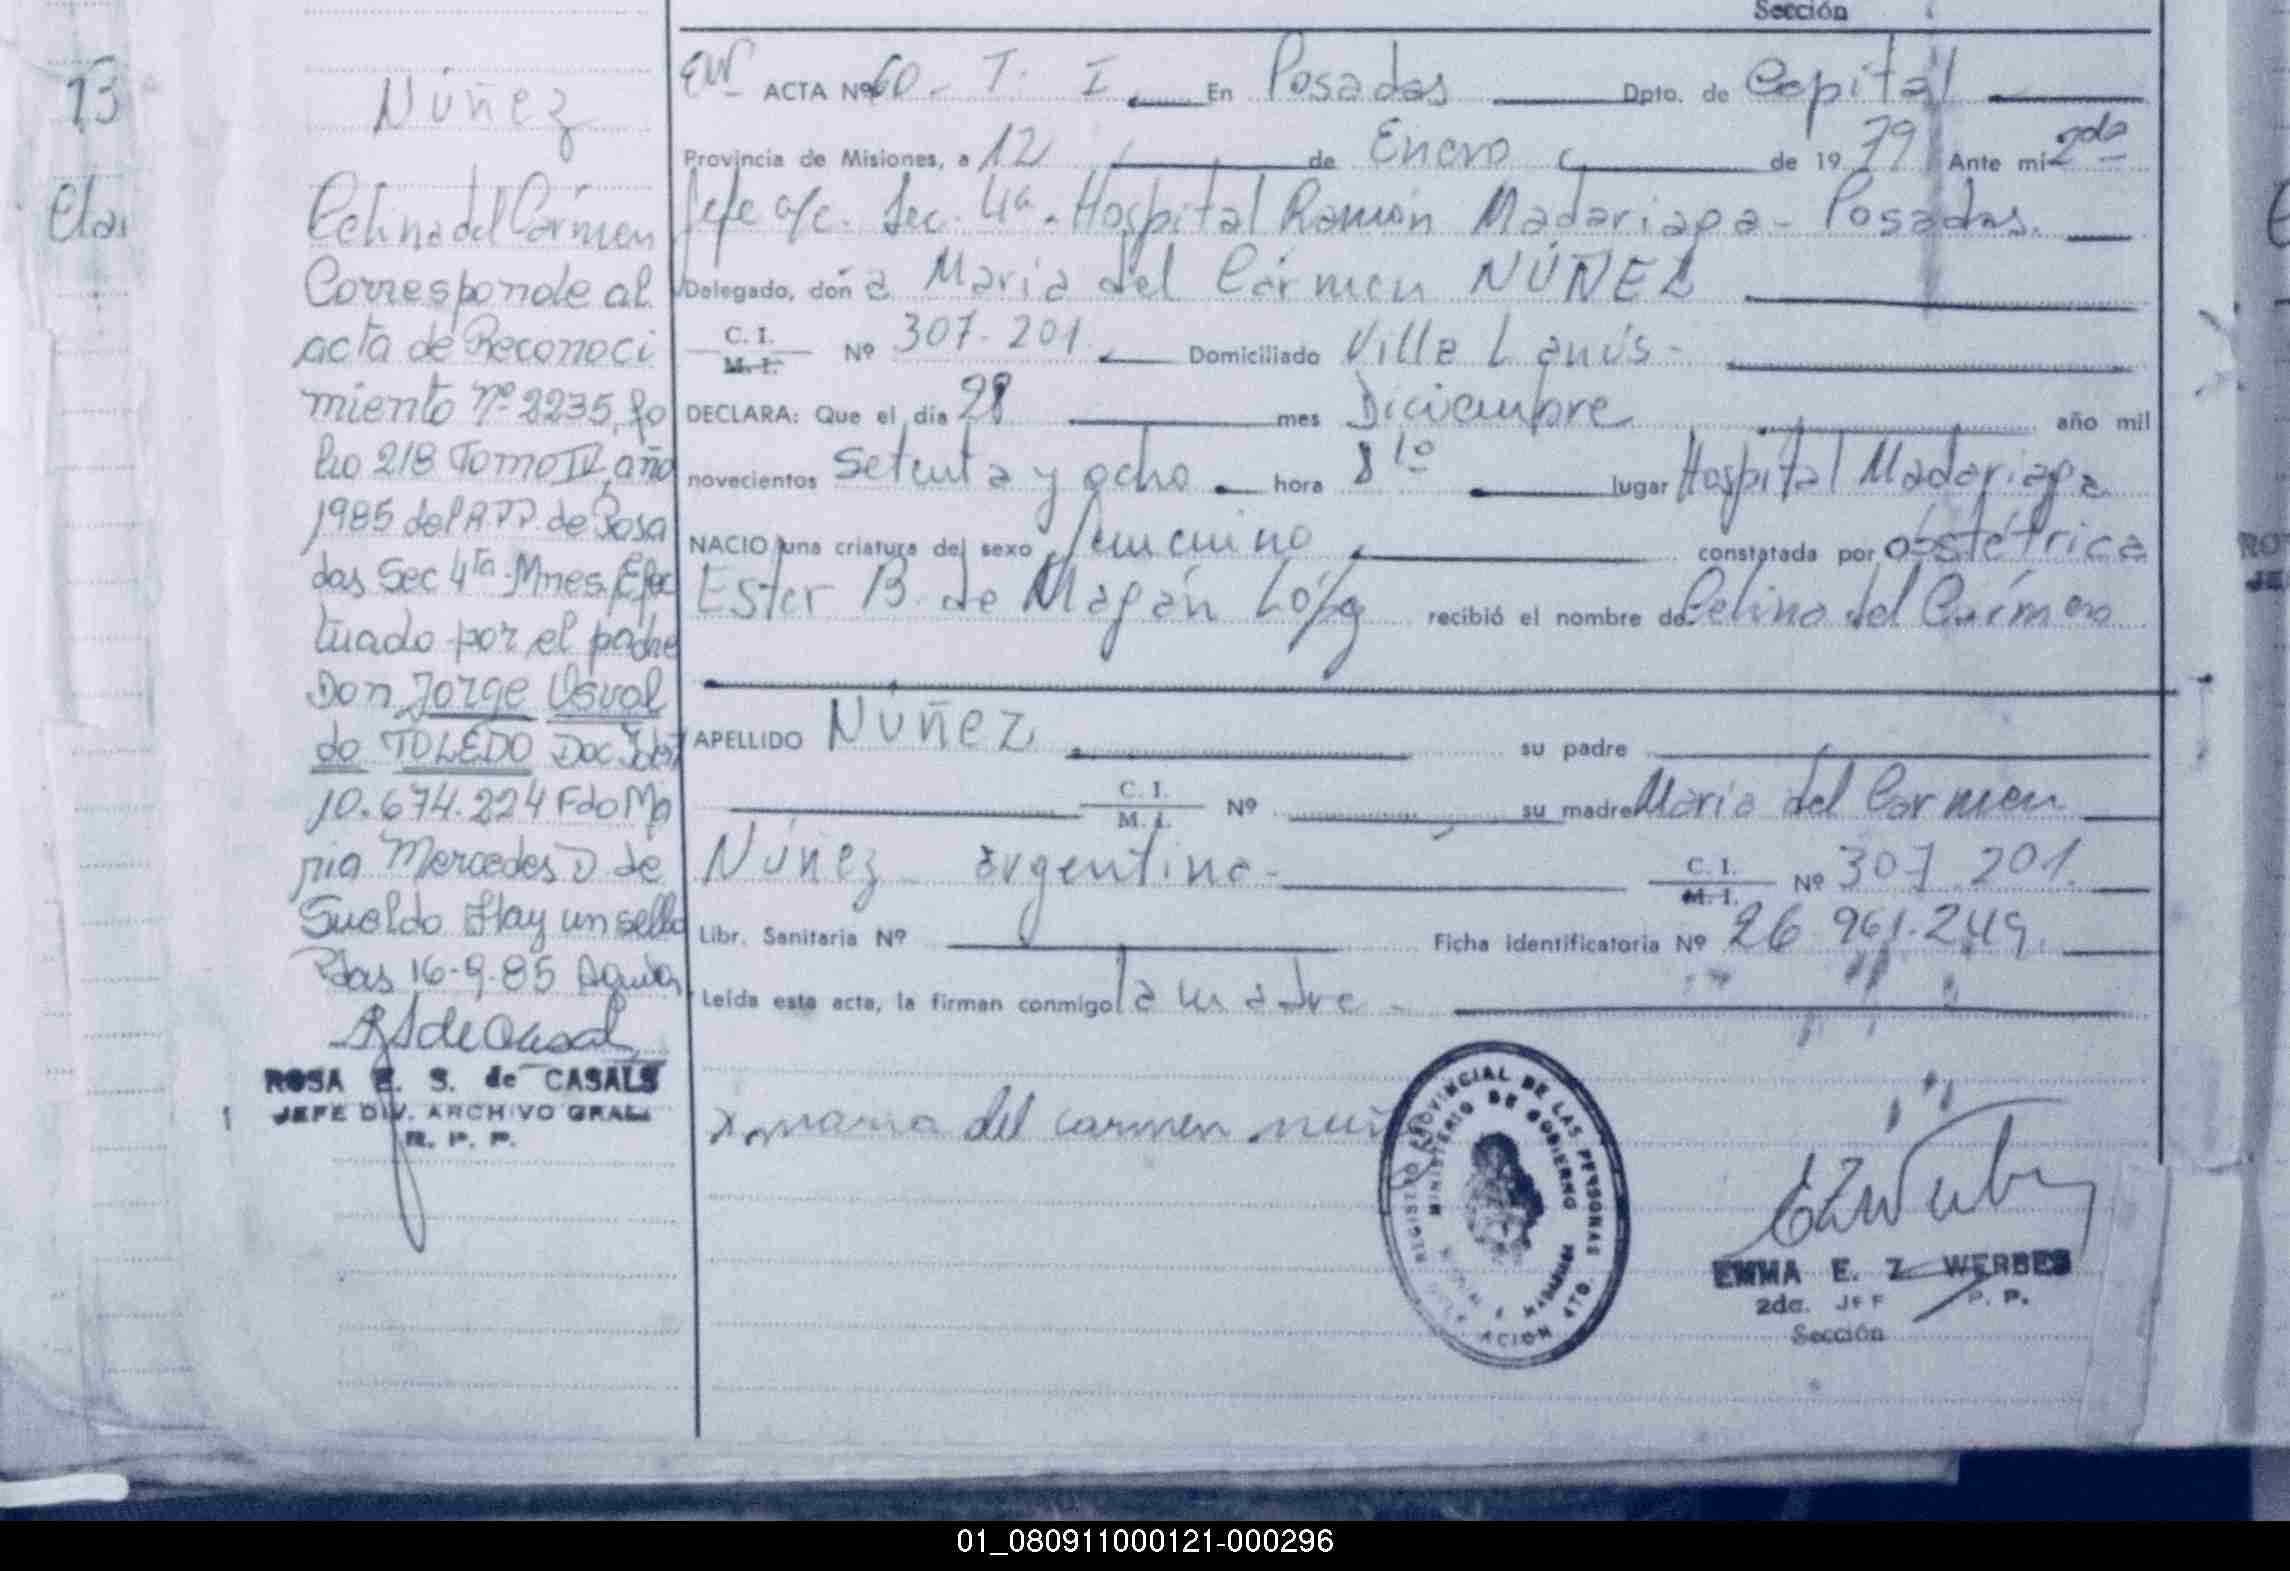 Sección
13
Núñez
Celina del Cármen
Corresponde al
acta de Reconoci
miento nº 2235, fo
lio 218 Tomo IV, año
1985 del R.P.P de Posa
das Sec 4ta - Mnes, Efec
tuado por el padre
Don Jorge Osval
do TOLEDO Doc Ident
10.674.224 Fdo Ma
ria Mercedes D de
Sueldo Hay un sello
Pdas 16-9-85
ROSA E. S. de CASALS
JEFE DIV. ARCHIVO GRAL.
R. P. P.
EW ACTA Nº 60 - T. I En Posadas Dpto. de Capital
Provincia de Misiones, a 12 de Enero de 19 79 Ante mi 2da
Jefe a/c. Sec. 4a. Hospital Ramón Madariaga - Posadas.
Delegado, don a Maria del Cármen NÚÑEZ
C. I.
M. I. Nº 307.201. Domiciliado Villa Lanús -
DECLARA: Que el día 28 mes Diciembre año mil
novecientos setenta y ocho hora 8 10 lugar Hospital Madariaga
NACIO una criatura del sexo femenino constatada por obstétrica
Ester B. de Magán López recibió el nombre de Celina del Cármen
APELLIDO Núñez su padre
C. I.
M. I. Nº su madre Maria del Carmen
Núñez - argentina - C. I.
M. I. Nº 307.201.
Libr. Sanitaria Nº Ficha identificatoria Nº 26.961.249.
Leída esta acta, la firman conmigo la madre -
x maria del carmen
REGISTRO PROVINCIAL DE LAS PERSONAS
MINISTERIO DE GOBIERNO
EMMA E. Z. WERBES
2da. JEF P. P.
Sección
01_080911000121-000296